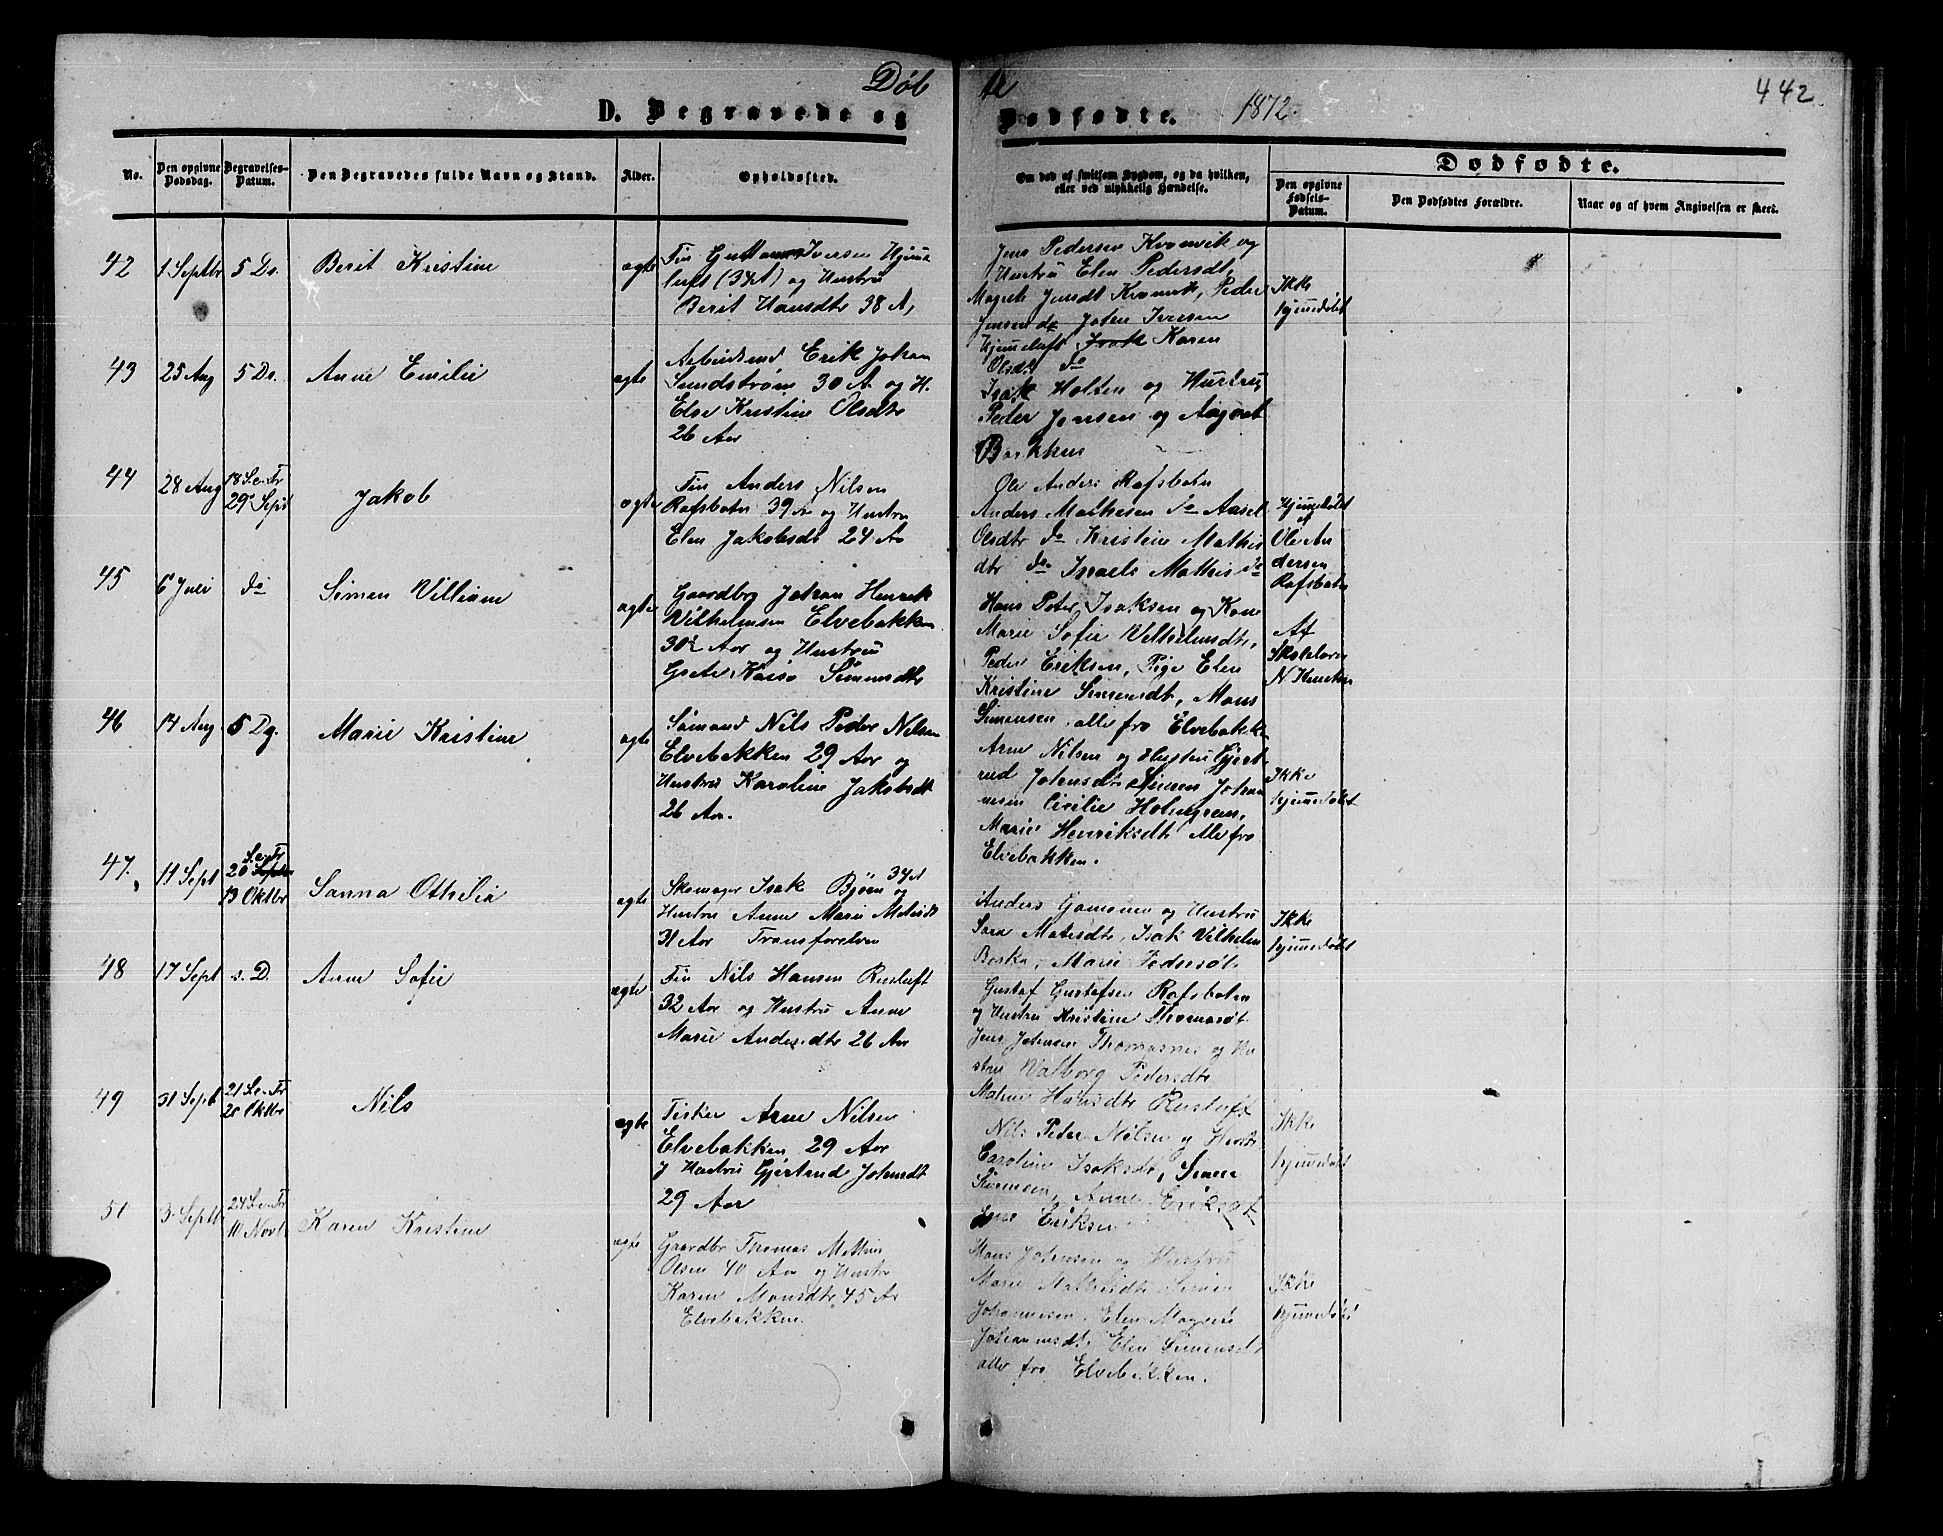 Døb te
D. Begravede og Dødfødte. 1872. 442.
No.
Den opgivne Dødsdag.
Begravelses-Datum.
Den Begravedes fulde Navn og Stand.
Alder.
Opholdssted.
Om død af smitsom Sygdom, og da hvilken, eller ved ulykkelig Hændelse.
Dødfødte.
Den opgivne Fødsels-Datum.
Den Dødfødtes Forældre.
Naar og af hvem Angivelsen er skeet.
42 1 Septbr 5 Do. Berit Kristine ægte
Fin Iversen Hjemmeluft (34A) og Hustru
Berit Hansdtr 38 A,
Jens Pedersen Kvænvik og
Hustru Elen Pedersdt,
Magrete Jensdt Kvænvik, Peder
Jensen do Johen Iversen
Hjemeluft, Isak Karen
Olsdtr do
Ikke
hjemedøbt
43 25 Aug 5 Do. Anne Emilie ægte
Arbeidsmd Erik Johan
Sundstrøm 30 A og H.
Else Kristine Olsdtr
26 Aar
Isak Holten og Hustru,
Peder Jensen og August
Bækhus
44 28 Aug 18 S.e.Tr 29 Sept Jakob ægte
Fin Anders Nilsen
Rafsbotn 39 A og Hustru
Elen Jakobsdt 24 Aa
Ole Anders Rafsbotn
Anders Mathisen do Aasel
Olsdtr do Kristine Mathis
dtr do Israels Mathis do
Hjemedøbt
af
Ole An
dersen
Rafsbotn
45 6 Juli do Simen Villiam ægte
Gaardbrg Johan Henrik
Vilhelmsen Elvebakken
30½ Aar og Hustru
Grete Kaisa Simensdtr
Hans Peter Isaksen og Kone
Marie Sofie Vilhelmsdtr,
Peder Eriksen, Pige Elen
Kristine Simensdt, Mons
Simensen, alle fra Elvebakke
Af
Skolelærer
N
46 14 Aug 5 Dg. Marie Kristine ægte
Sømand Nils Peder Nilsen
Elvebakken 29 Aar og
Hustru Karoline Jakobsdt
26 Aar.
Arne Nilsen og Hustru Gjert
rud Johensdtr Simen Johan
nesen Cecilie Holmgrem,
Marie Henriksdt Alle fra
Elvebakken.
Ikke
hjemmedøbt
47. 11 Sept S.e.Tr 20 Septbr 13 Oktbr Sanna Othilia ægte
Skomager Isak Bjørn 34A og
Hustru Anne Marie Matisdt
31 Aar Transfarelven
Anders og Hustru
Sara Matisdtr, Isak Vilhelm
Marie Pedersdt
Ikke
hjemedøbt
48 17 Sept s. D. Anne Sofie ægte
Fin Nils Hansen Rusluft
32 Aar og Hustru Anne
Marie Andersdtr 26 Aar
Gustaf Gustafsen Rafsbotn
og Hustru Kristine Thomasdt
Jens Johnsen Thomasnes og Hu
stru Valborg Pedersdtr
Hansdtr Rusluft
49 31 Sept 21 S.e.Tr 20 Oktbr Nils ægte
Fisker Arne Nilsen
Elvebakken 29 Aar
og Hustru Gjertrud Johensdt
29 Aar
Nils Peder Nilsen og Hustr
Caroline Isaksdtr,
Anne Eriksdt
Eriksen
Ikke
hjemedøbt
51 3 Septbr 24 S.e.Tr 10 Novbr Karen Kristine ægte
Gaardbr Thomas Mathias
Olsen 40 Aar og Hustru
Karen Monsdtr 45 Ar
Elvebakken
Mons Johensen og Hustru
Marie Mathisdtr Simen
Johannesen, Elen Magrete
Johannesdt. Elen Simensdt
alle fra Elvebakken.
Ikke
hjemedøbt